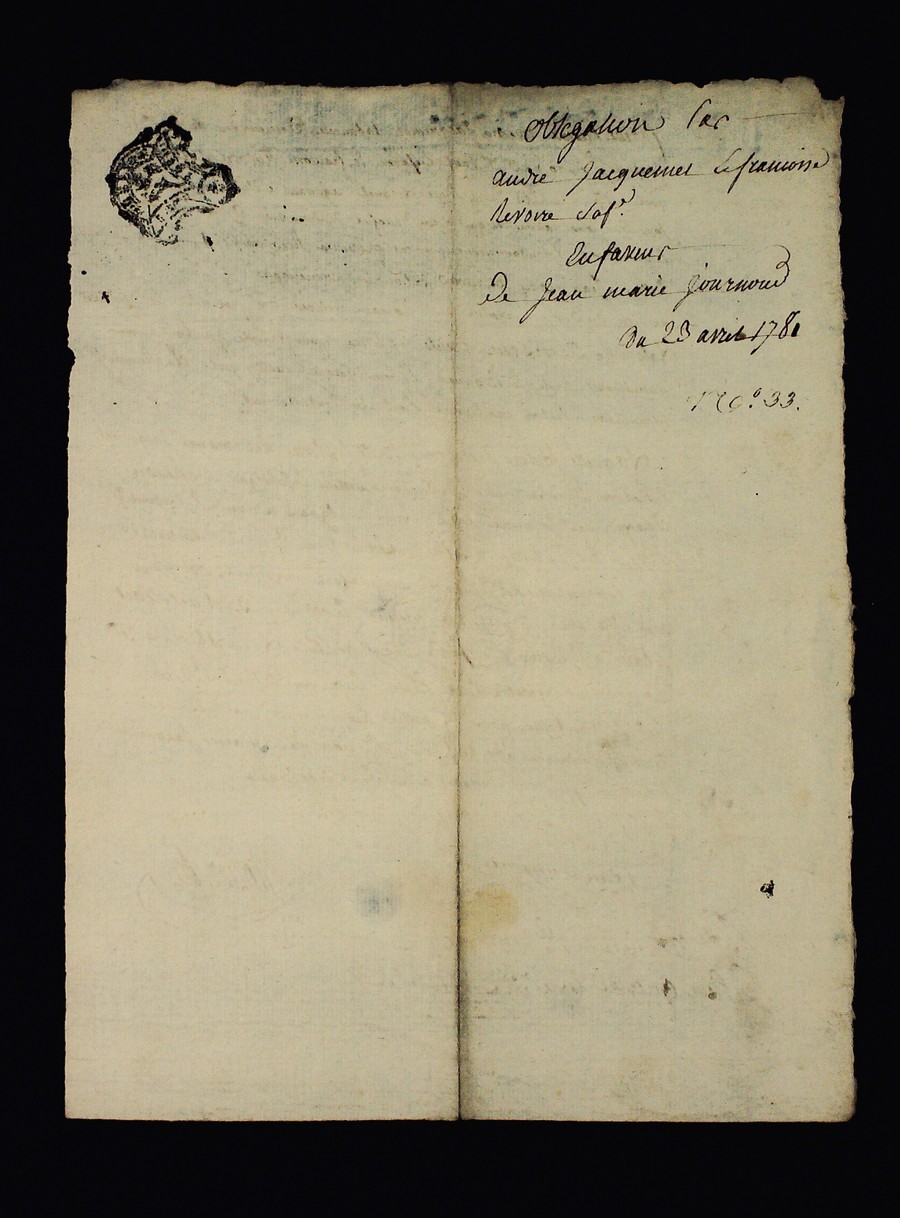 obligation par
andré Jacquemet & francoise
Revoire sa f.e
En faveur
de Jean marie Journoud
du 23 avril 1781
N.o 33.